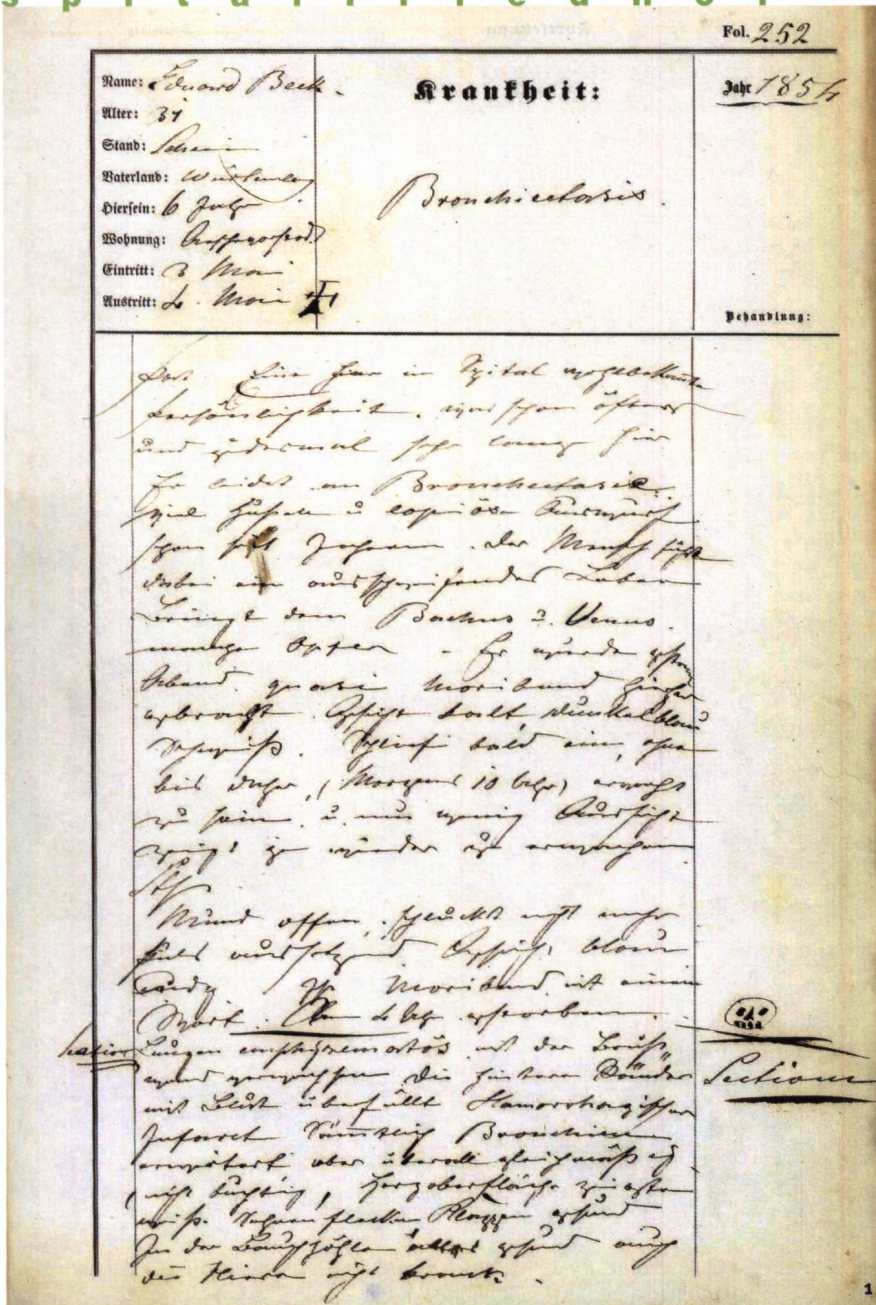 s p i t a l f r i e d h o f
Fol. 252
Name: Eduard Beck.
Alter: 31
Stand:
Vaterland: Württemberg
Hiersein: 6 Jahr
Wohnung:
Eintritt: 3 Mai
Austritt: 4. Mai
Krankheit:
Bronchiectasis.
Jahr 1854
Behandlung:
Eine hier im Spital wohlbekannte
Persönlichkeit. war schon öfters
und jedesmal sehr lange hier
Er leidet an Bronchectasie.
viel Husten u copiösen Auswurf
schon seit Jahren. Der Mensch führt
dabei ein ausschweifendes Leben
bringt dem Bachus u. Venus.
manche Opfer - Er wurde gestern
Abend quasi moribund hieher
gebracht. Gesicht kalt dunkelblau
Schweiß. Schlief bald ein, ohne
bis daher, (Morgens 10 Uhr) erwacht
zu sein u. nun wenig Aussicht
zeigt je wieder zu erwachen
Mund offen, schluckt nicht mehr
Puls aussetzend Gesicht blau
ist Moribund mit einem
Wort. Um 4 Uhr gestorben.
Section
Lungen emphysematös mit der Brust
wand verwachsen die hinteren Ränder
Sections
mit Blut überfüllt Hämorrhagischer
Infarct Sämtlich Bronchien
erweitert aber überall gleichmäßig
(nicht buchtig) Herzoberfläche
weiß. Sehnenflecken Klappen gesund
In der Bauchhöhle alles gesund auch
die Nieren nicht krank.
1